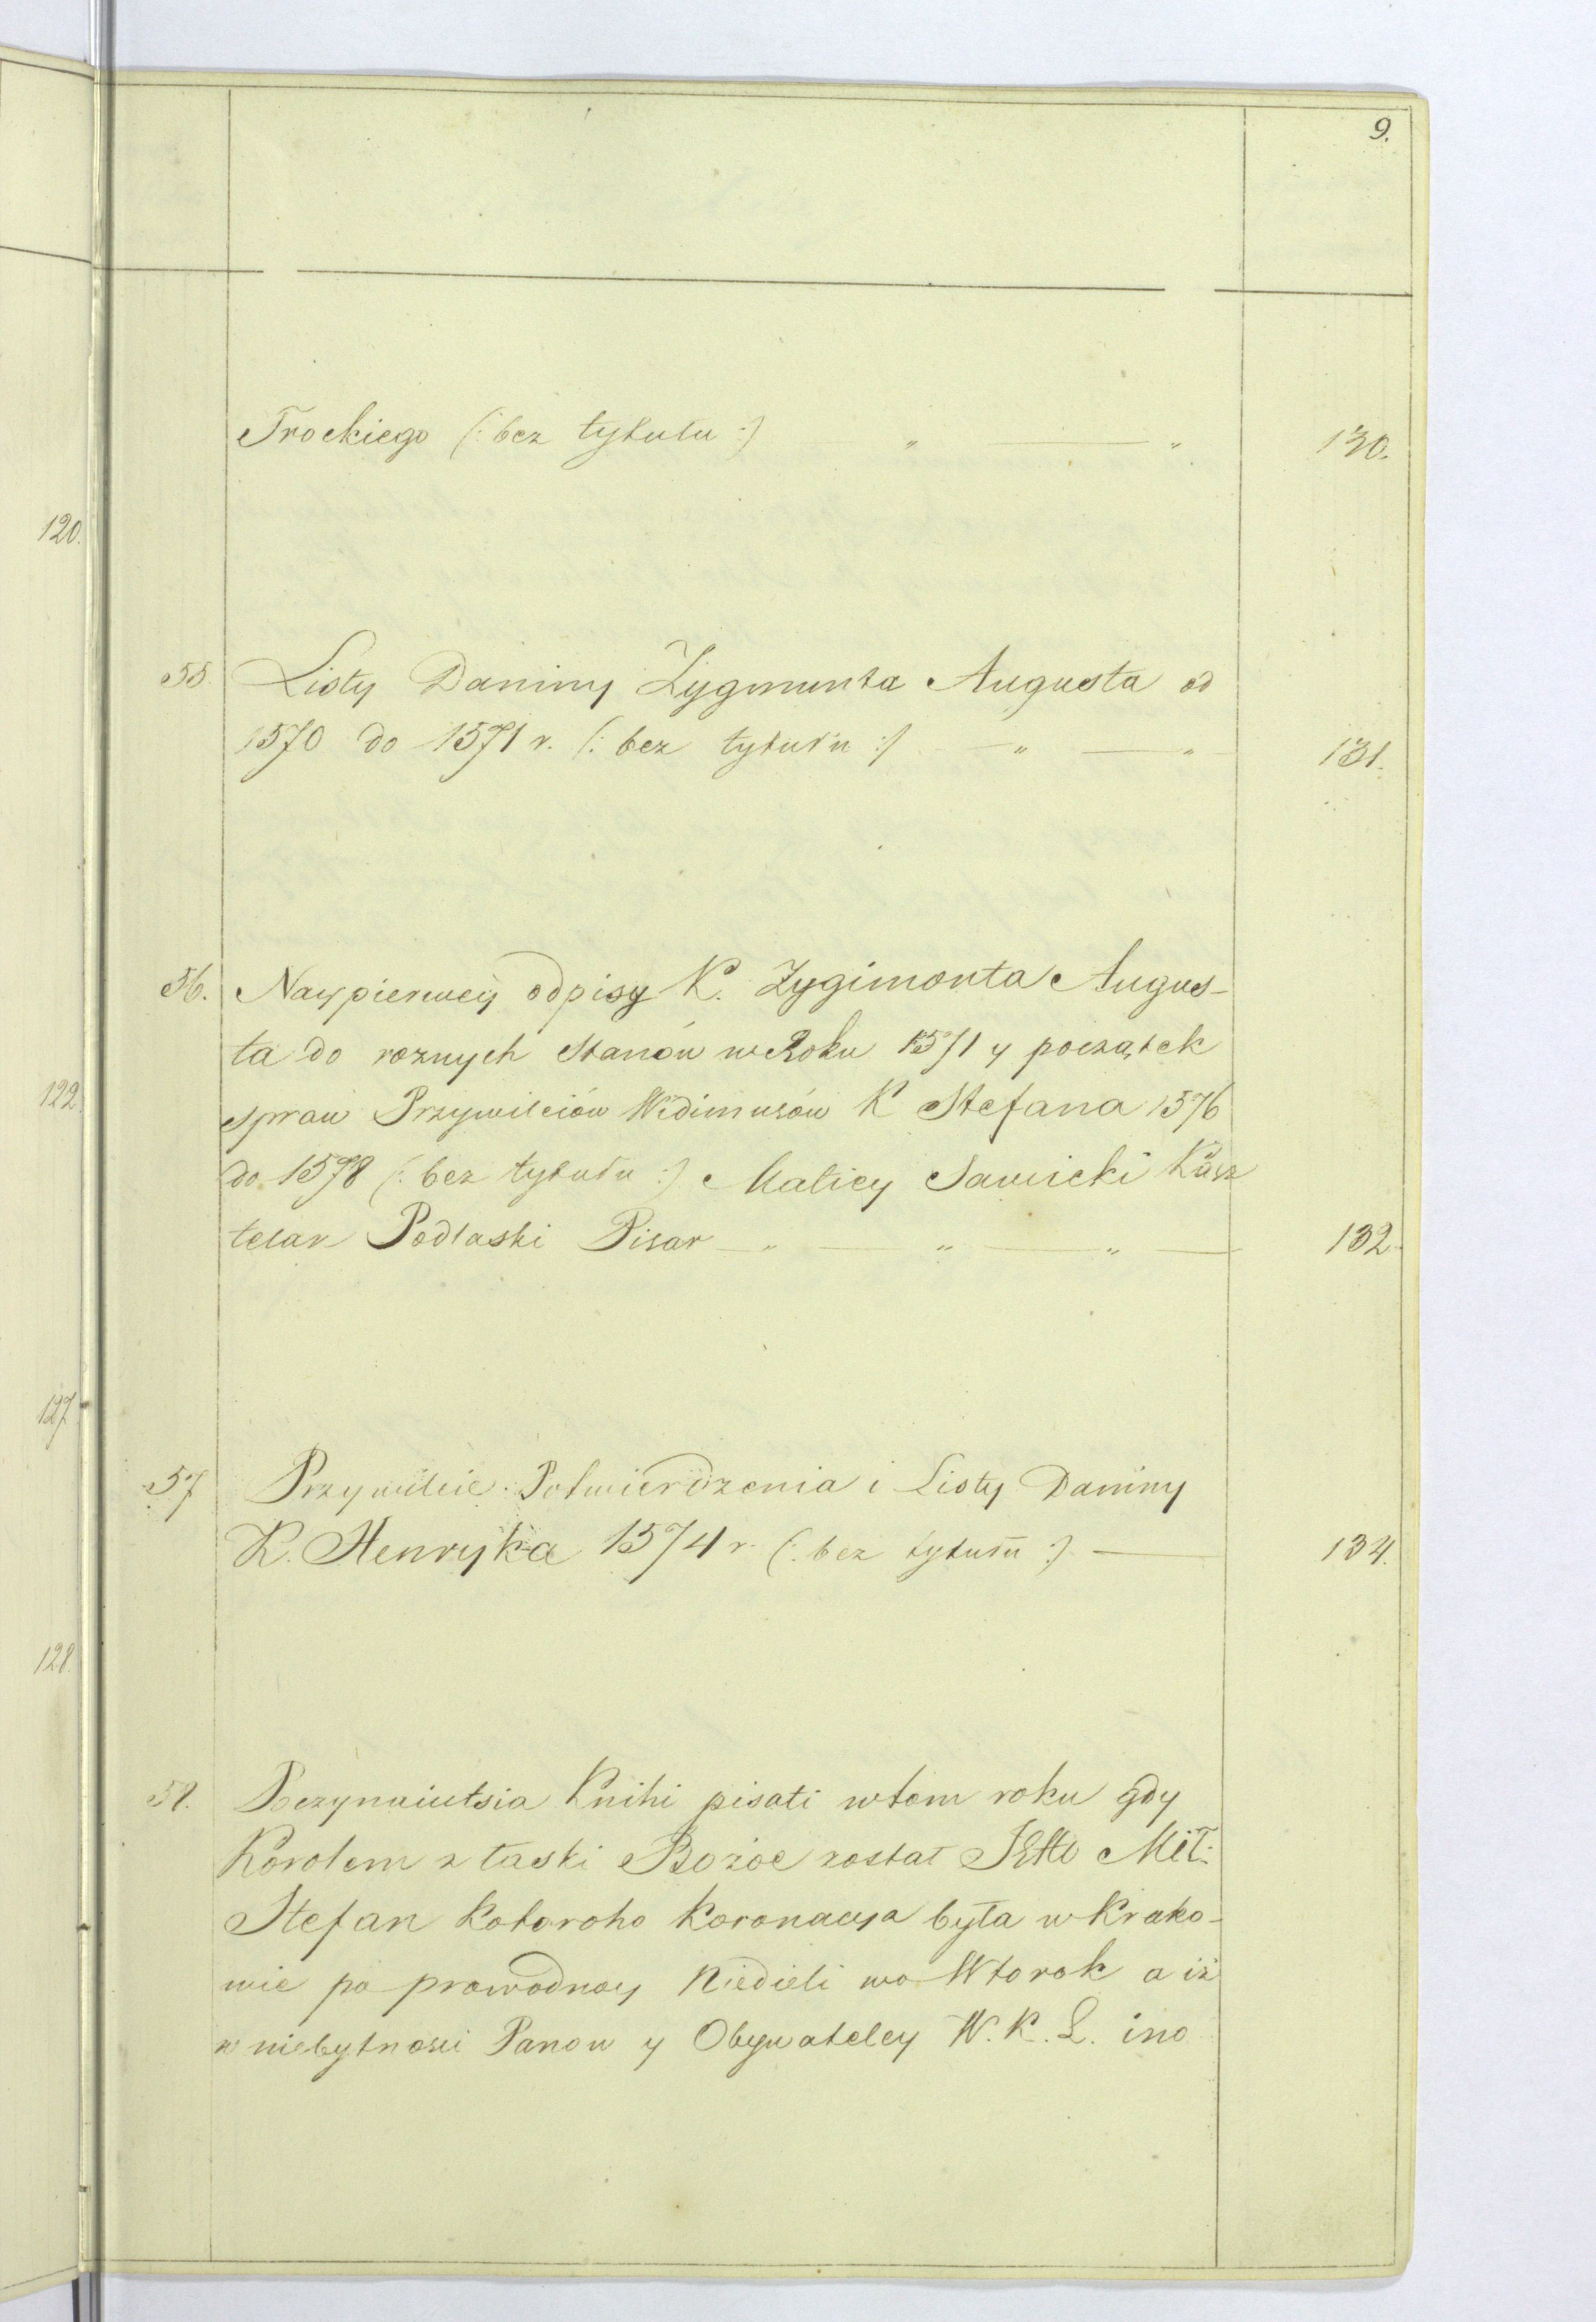 9.
Trockiego (: bez tytułu :) " — " 130.
120.
55. Listy Daniny Zygmunta Augusta od
1570 do 1571 r. (: bez tytułu :) — " — " — 131.
56. Naypierwey odpisy K. Zygimonta Augus-
ta do roznych Stanów w Roku 1571 y początek
122.
spraw Przywileiów Widimusów K Stefana 1576
do 1578 (: bez tytułu :) Maticy Sawicki Kasz
telan Podlaski Pisar — " — " — " — 132.
127.
57 Przywileie Potwierdzenia i Listy Daniny
K. Henryka 1574 r. (: bez tytułu :) — 134.
128.
58. Poczynaiutsia Knihi pisati w tom roku gdy
Korolem z łaski Bożoe został Mił:
Stefan kotoroho koronacya była w Krako-
wie po prowodnoy Niedieli wo Wtorok a iż
w niebytnosci Panow y Obywateley W. K. L. ino